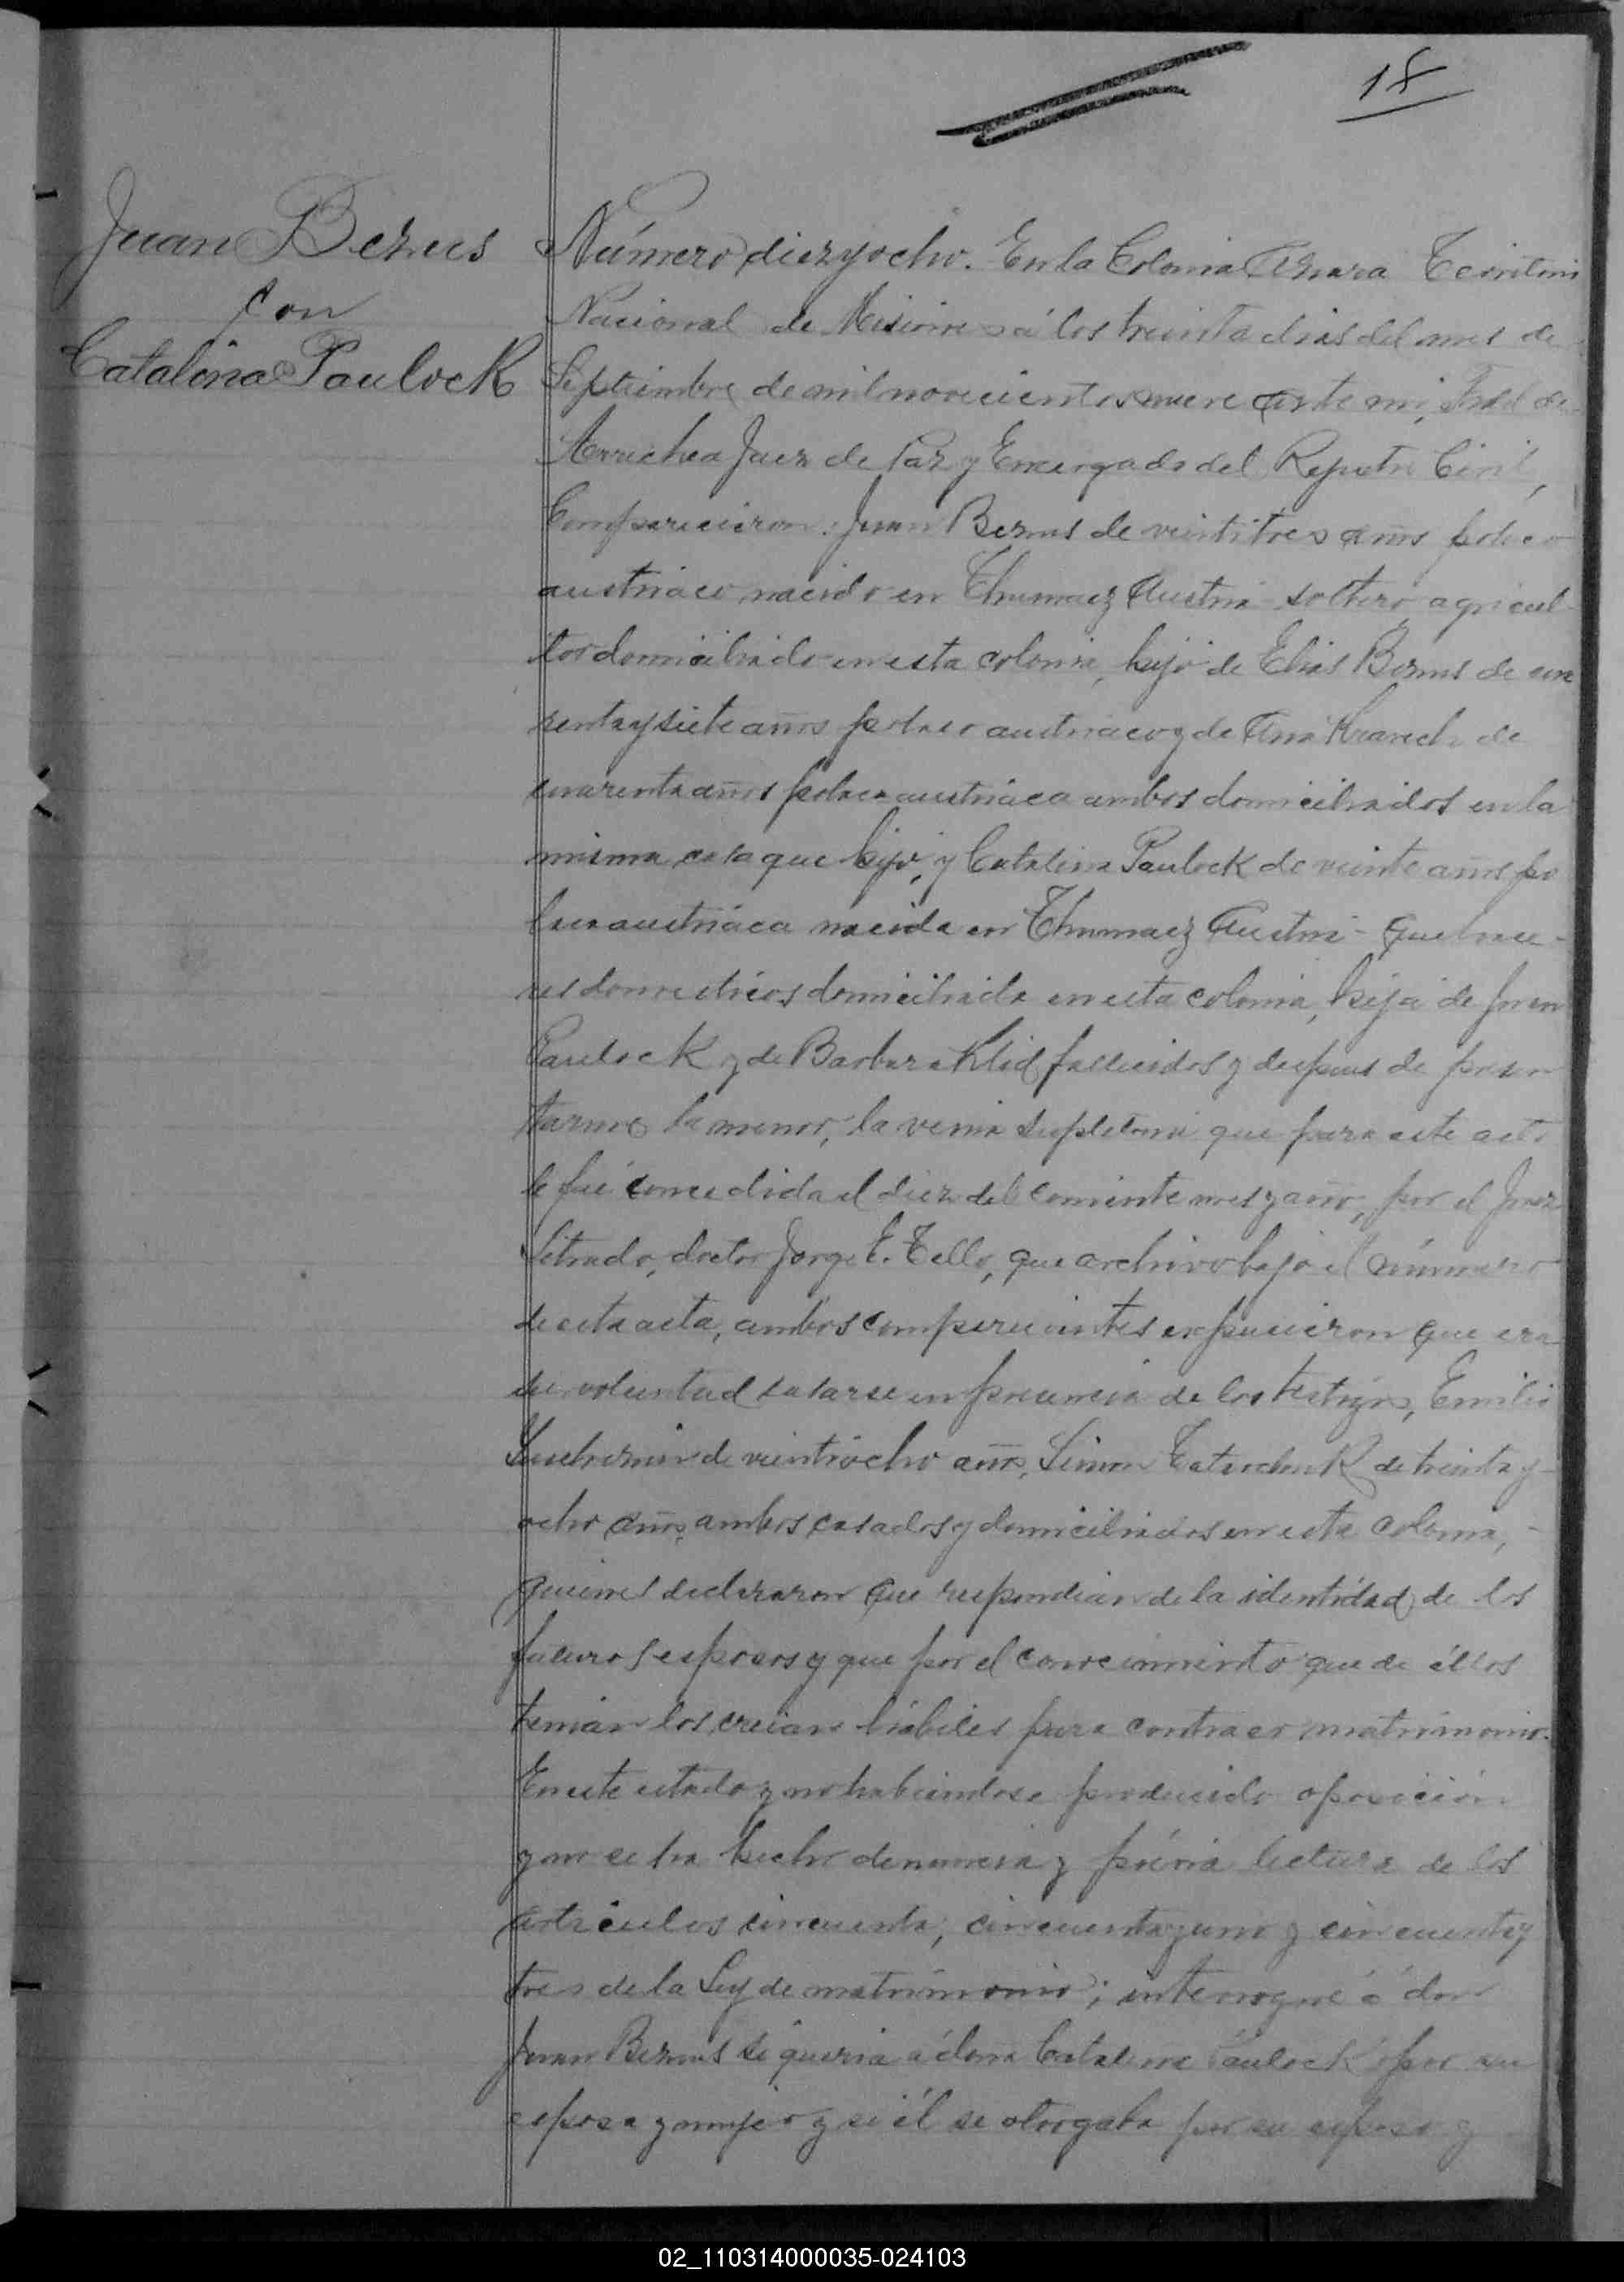 18
Juan Bezus
con
Catalina Paulock
Número diez y ocho. En la Colonia Azara Territorio
Nacional de Misiones á los treinta dias del mes de
Septiembre de mil novecientos nueve ante mi, de
Arrechea Juez de Paz y Encargado del Registro Civil,
Comparecieron: Juan Bezus de veintitres años polaco
austriaco nacido en Austria soltero agricul-
tor domiciliado en esta colonia, hijo de Elias Bezus de cua
renta y siete años polaco austriaco y de Ana de
cuarenta años polaca austriaca ambos domiciliados en la
misma casa que hijo, y Catalina Paulock de veinte años po
laca austriaca nacida en Austria - quehace-
res domesticos domiciliada en esta colonia, hija de Juan
Paulock y de Barbara fallecidos y despues de presen
tarme la menor, la venia supletoria que para este acto
le fué concedida el diez del corriente mes y año, por el Juez
Letrado, doctor Jorge E. Tello, que archivo bajo el número
de esta acta, ambos comparecientes expusieron que era
su voluntad casarse en presencia de los testigos, Emilio
de veintiocho años, Simon de treinta y
ocho años, ambos casados y domiciliados en esta colonia, -
quienes declararon que respondian de la identidad de los
futuros esposos y que por el conocimiento que de éllos
tenian los creian hábiles para contraer matrimonio.
En este estado y no habiendose producido oposición
y no se ha hecho denuncia y prévia lectura de los
artículos cincuenta, cincuenta y uno y cincuenta y
tres de la Ley de matrimonio; interrogué á don
Juan Bezus si queria á doña Catalina Paulock por su
esposa y mujer y si él se otorgaba por su esposo y
02_110314000035-024103